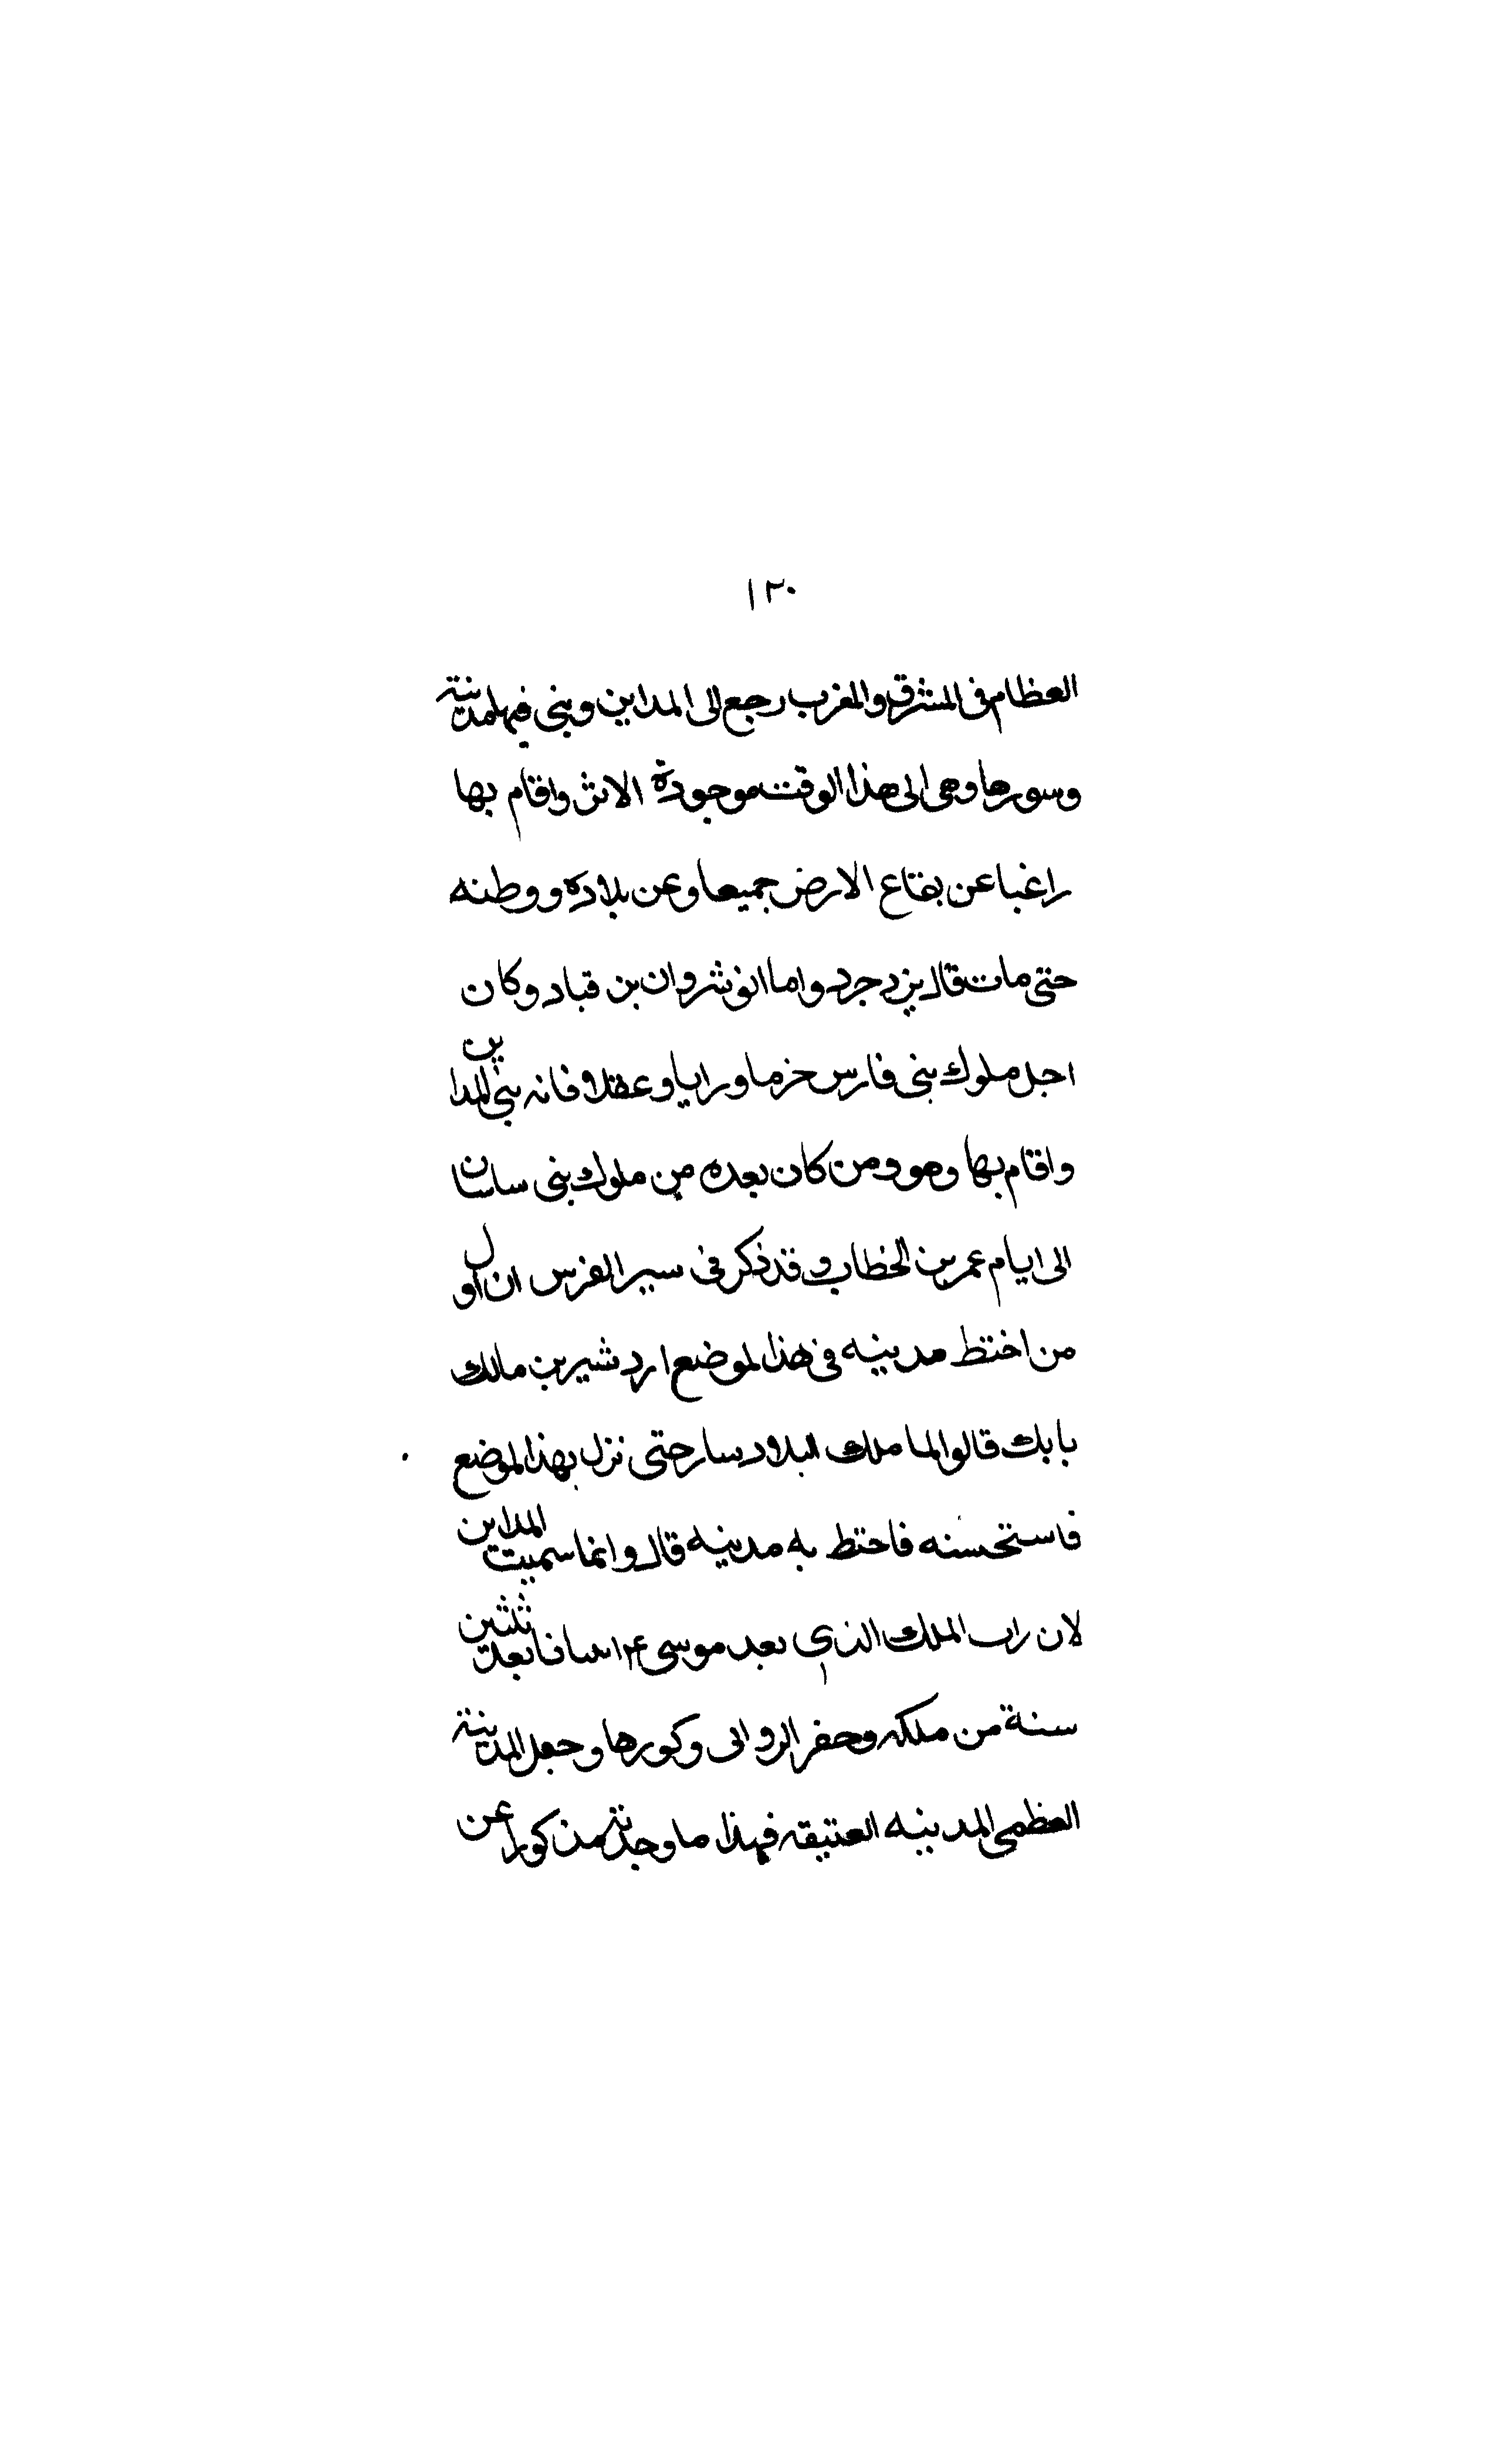 ١٣٠
العظام فى المشرق والمغرب رجع الى المداين وبنى فيها مدينة
وسورها وهى الى هذا الوقت موجودة الاثر واقام بها
راغبا عن بقاع الارض جميعا وعن بلاده ووطنه
حتى مات قال يزدجرد واما انوشروان بن قباد وكان
اجل ملوك بنى فارس حزما ورايا وعقلا فانه بنى المداين
واقام بها وهو ومن كان بعده من ملوك بنى ساسان
الى ايام عمر بن الخطاب وقد ذكر فى سير الفرس ان اول
من اختط مدينه فى هذا لموضع اردشير بن مالك
بابك قالوا لما ملك البلاد سار حتى نزل بهذا الموضع
فاستحسنه فاحتط به مدينه قال وانما سميت المداين
لان زاب الملك الذى بعد موسى ع م بعد ثلثين
سنة من ملكه وحفر الزوابى وكورها وجعل المدينة
العظمى المدينه العتيقه فهذا ما وجدته مذكورا عن